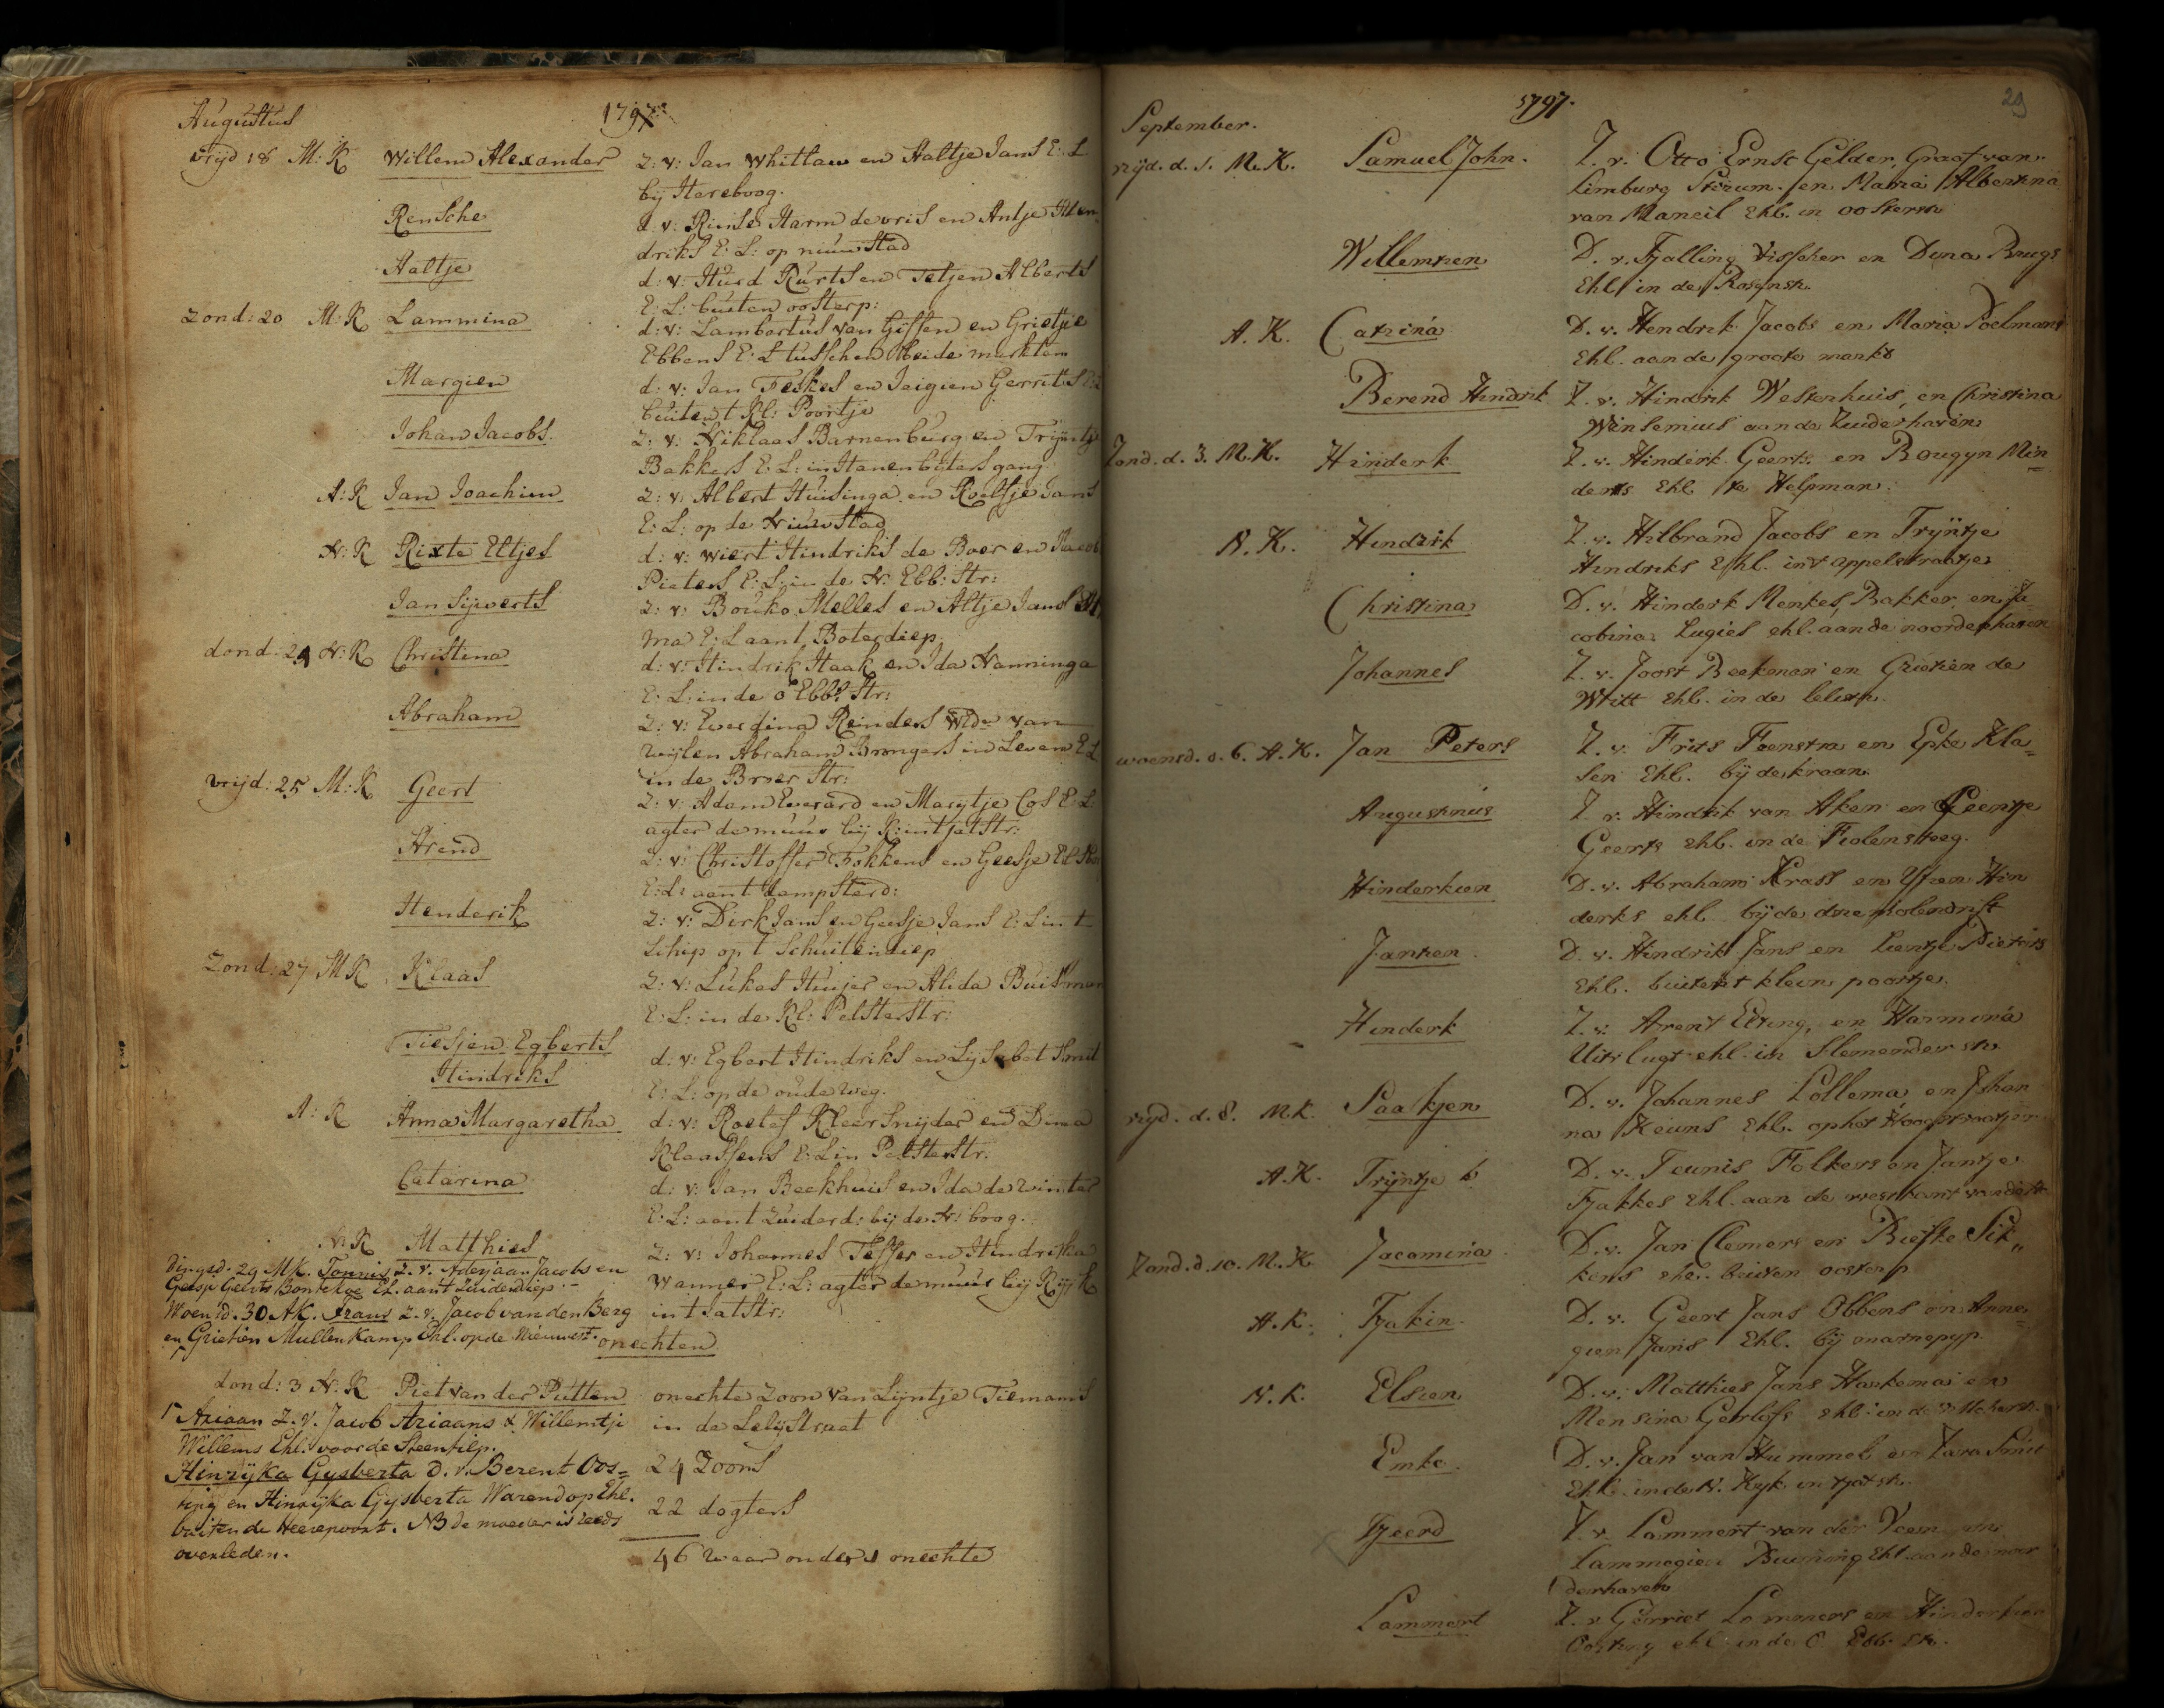 Augustus
1797
vrijd 18 M: K Willem Alexander Z: v: Jan Whitlaw en Aaltje Jans E: L
bij Hereboog.
Rensche d: v: Rinse Harm de vris en Antje Hen
driks E: L: op nieuw Stad
Aaltje d: v: Kurts en Tetjen Alberts
E: L: buiten oosterp:
Zond: 20 M: K Lammina d: v: Lambertus van Giffen en Grietje
Ebbens E: L tusschen beide markten
Margien d: v: Jan Feskes en Jeigien Gerrits
buiten t Kl: Poortje
Johan Jacobs. Z: v: Niklaas Barnenburg en Trijntje
Bakkers E: L: in Hanenbijters gang
A: K Jan Joachim Z: v: Albert Huisinga en Roelfje Jans
E: L: op de Nieuw Stad
N: K Rixte Eltjes d: v: Wiert Hindriks de Boer en
Pieters E: L: in de N: Ebb: Str:
Jan Sijwerts Z: v: Bouko Melles en Altje Jans
ma E: L aant Boterdiep
dond: 24 N: K Christina d: v: Hindrik Haak en Ida Nanninga
E: L: in de o Ebb: Str:
Abraham Z: v: Everdina Reinders Wde van
wijlen Abraham Brongers in Leven E L
in de Broer Str:
vrijd: 25 M: K Geert Z: v: Adam Everard en Marytje Cos E: L:
agter de muur bij
Arend Z: v: Christoffer Fokkens en Geesje
E: L: aant dampsterd:
Henderik Z: v: Dirk Jans en Geesje Jans E: L in t
Schip op t Schuitendiep
Zond: 27 M K Klaas Z: v: Lukas Huijer en Alida Buisman
E: L: in de Kl: Pelsterstr:
Tiesjen Egberts
Hindriks d: v: Egbert Hindriks en Lijsabet Smit
E: L: op de oude weg.
A: K Anna Margaretha d: v: Roelef Kleersnijder en Dina
Klaassens E: L in Pelsterstr:
Catarina d: v: Jan Beekhuis en Ida de winter
E: L: aant Zuiderd: bij de N: boog.
N: K Matthies Z: v: Johannes Teffer en Hindrika
Wanner E: L: agter de muur bij
int Jatstr:
Dingsd. 29 MK. Tonnis Z. v. Aderjaan Jacobs en
Geesje Geerts Bontekoe Eh. aant Zuiderdiep.
Woensd. 30 AK. Frans Z. v. Jacob van den Berg
en Grietien Mullenkamp Ehl. op de Nieuwest.
onechten
dond: 3 N: K Piet van der Putten onechte Zoon van Lijntje Tiemans
in de Lelijstraat
Ariaan Z. v. Jacob Ariaans & Willemtje
Willems Ehl. voor de Steentilp.
Hinrijka Gysberta D. v. Berent Oos=
ting en Hinrijka Gysberta Warendop Ehl.
buiten de Heerepoort. NB de moeder is reeds
overleden.
24 Zoons
22 dogters
46 waar onder 1 onechte
29
1797.
September.
vrijd. d. 1. M. K. Samuel John. Z. v. Otto Ernst Gelder, Graaf van
Limburg Stirum. en Maria Albertina
van Maneil Ehl. in oosterstr
Willemtien D. v. Tjalling Visscher en Dina Brugs
Ehl in de Rosynstr.
A. K. Catrina D. v. Hendrik Jacobs en Maria Poelmans
Ehl. aan de groote markt
Berend Hindrik Z. v. Hindrik Westerhuis, en Christina
Winsemius aan de Zuiderhaven
Zond. d. 3. M. K. Hinderk Z. v. Hinderk Geerts en Bougyn Min
derts Ehl te Helpman.
N. K. Hindrik Z. v. Hilbrand Jacobs en Trijntje
Hindriks Ehl. in 't appelstraatje
Christina D. v. Hinderk Menkes, Bakker, en Ja
cobina Lugies ehl. aan de noorderhaven
Johannes Z. v. Joost Beekman en Grietien de
Writt Ehl. in de leliestr.
woensd. d. 6. A. K. Jan Peters Z. v. Frits Feenstra en Epke Kla=
sen Ehl. bij de kraan
Augustinus Z v. Hindrik van Aken en Geentje
Geerts ehl. in de Fiolensteeg.
Hinderkien D. v. Abraham Krass en Ytzen Hin
derks ehl. bij de drie molendrift
Jantien D. v. Hindrik Jans en Lientje Pieters
Ehl. buiten t klein poortje.
Hinderk Z. v. Arent Elting, en Harmina
Uitslugt ehl. in Slemenderstr.
vrijd. d. 8. M. K. Saakjen D. v. Johannes Lollema en Johan
na Keuns Ehl. op het Hoogstraatjen
A. K. Trijntje D. v. Teunis Folkers en Jantje
Tjakkes Ehl. aan de westkant
Zond. d. 10. M. K. Jacomina D. v. Jan Clemers en Biefke Sik„
kens ehl. buiten oosterp
A. K. Tjakin D. v. Geert Jans Obbens en Anne=
gien Jans Ehl. bij marnepyp
N. K. Elsien D. v. Matthies Jans Harkema en
Mensina Gerlofs ehl. in de
Emke. D. v. Jan van Hummel en Zara Smit
Ehl. in de N. Kyk in tjatstr.
Tjeerd Z. v Lammert van der Veen en
Lammegien Buining Ehl. aan de noor
derhaven
Lammert Z. v Gerriet Lammers en Hinderkien
Oosting ehl in de O. Ebb. str.